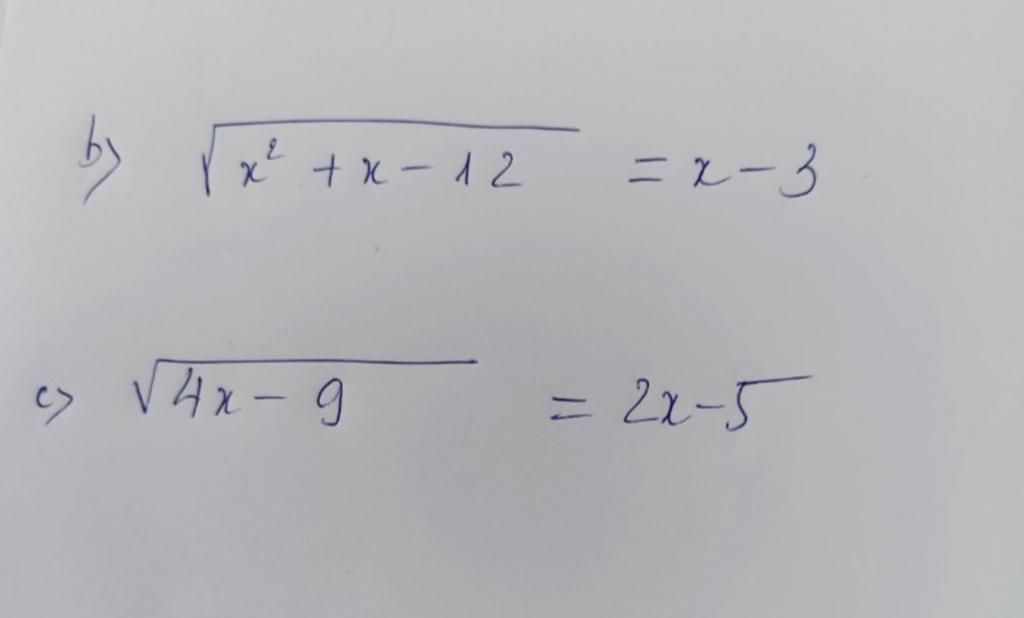 b) √(x² + x - 12) = x - 3
c) √(4x - 9) = 2x - 5